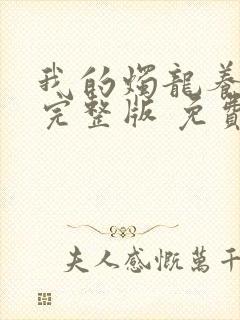 我的燭龍養
完整版 免費
夫人感慨萬千